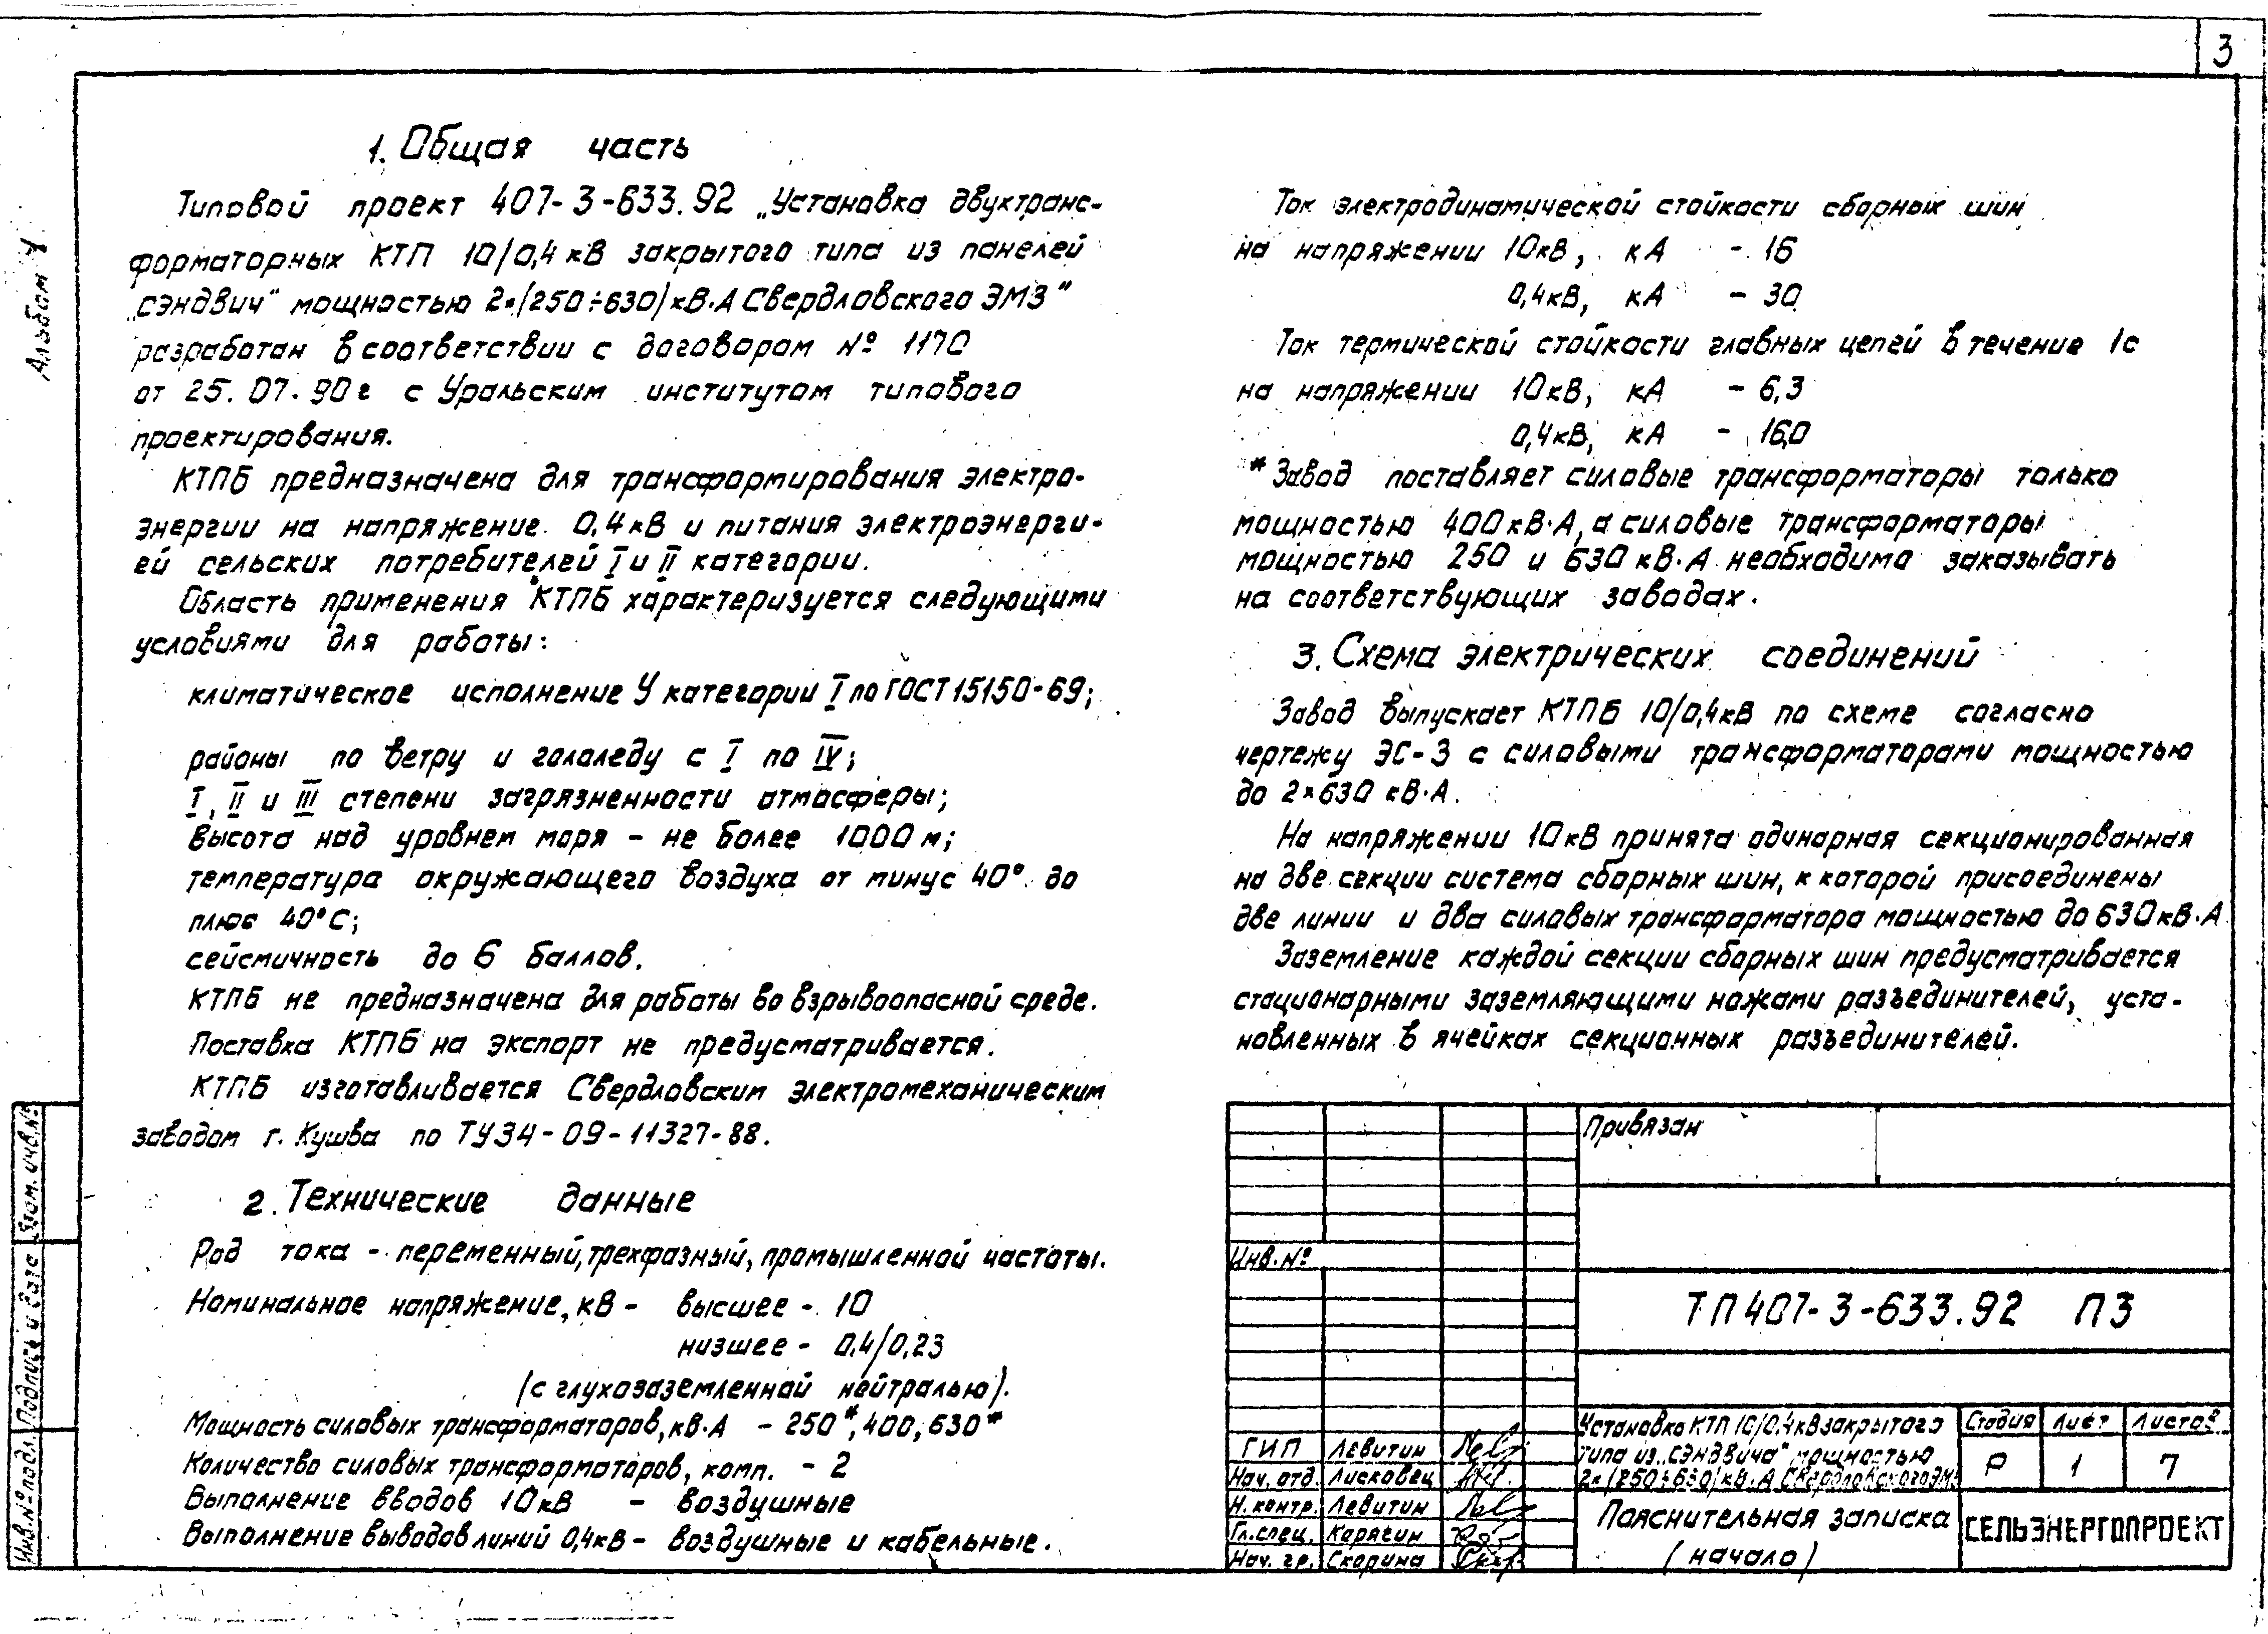 3
Альбом 4
1. Общая часть
Типовой проект 407-3-633.92 „Установка двухтранс-
форматорных КТП 10/0,4 кВ закрытого типа из панелей
„сэндвич" мощностью 2×(250÷630) кВ·А Свердловского ЭМЗ"
разработан в соответствии с договором № 1170
от 25.07.90г с Уральским институтом типового
проектирования.
КТПБ предназначена для трансформирования электро-
энергии на напряжение 0,4 кВ и питания электроэнерги-
ей сельских потребителей I и II категории.
Область применения КТПБ характеризуется следующими
условиями для работы:
климатическое исполнение У категории I по ГОСТ 15150-69;
районы по ветру и гололеду с I по IV;
I, II и III степени загрязненности атмосферы;
высота над уровнем моря - не более 1000 м;
температура окружающего воздуха от минус 40° до
плюс 40°С;
сейсмичность до 6 баллов.
КТПБ не предназначена для работы во взрывоопасной среде.
Поставка КТПБ на экспорт не предусматривается.
КТПБ изготавливается Свердловским электромеханическим
заводом г. Кушва по ТУ34-09-11327-88.
2. Технические данные
Род тока - переменный, трехфазный, промышленной частоты.
Номинальное напряжение, кВ - высшее - 10
низшее - 0,4/0,23
(с глухозаземленной нейтралью).
Мощность силовых трансформаторов, кВ·А - 250*, 400, 630*
Количество силовых трансформаторов, комп. - 2
Выполнение вводов 10кВ - воздушные
Выполнение выводов линий 0,4кВ - воздушные и кабельные.
Ток электродинамической стойкости сборных шин
на напряжении 10кВ, кА - 16
0,4кВ, кА - 30
Ток термической стойкости главных цепей в течение 1с
на напряжении 10кВ, кА - 6,3
0,4кВ, кА - 16,0
* Завод поставляет силовые трансформаторы только
мощностью 400 кВ·А, а силовые трансформаторы
мощностью 250 и 630 кВ·А необходимо заказывать
на соответствующих заводах.
3. Схема электрических соединений
Завод выпускает КТПБ 10/0,4кВ по схеме согласно
чертежу ЭС-3 с силовыми трансформаторами мощностью
до 2×630 кВ·А.
На напряжении 10кВ принята одинарная секционированная
на две секции система сборных шин, к которой присоединены
две линии и два силовых трансформатора мощностью до 630 кВ·А
Заземление каждой секции сборных шин предусматривается
стационарными заземляющими ножами разъединителей, уста-
новленных в ячейках секционных разъединителей.
Привязан
Инв. №
ТП 407-3-633.92 ПЗ
ГИП Левитин
Нач. отд. Лисковец
Н. контр. Левитин
Гл. спец. Карягин
Нач. гр. Скорина
Установка КТП 10/0,4кВ закрытого
типа из „сэндвича" мощностью
2×(250÷630) кВ·А Свердловского ЭМЗ
Пояснительная записка
(начало)
Стадия Лист Листов
Р 1 7
СЕЛЬЭНЕРГОПРОЕКТ
Взам. инв. №
Подпись и дата
Инв. № подл.